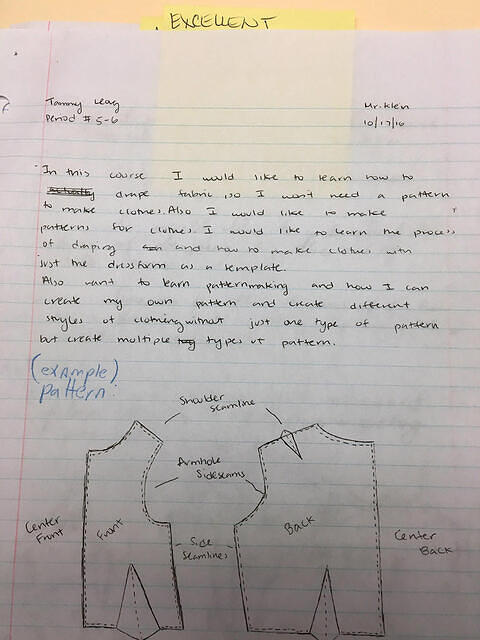 EXCELLENT
Tammy
Mr. Klen
Period # 5-6
10/17/16
In this course I would like to learn how to
drape fabric, so I won't need a pattern
to make clothes. Also I would like to make
patterns for clothes. I would like to learn the process
of draping and how to make clothes with
just the dressform as a template.
Also want to learn patternmaking and how I can
create my own pattern and create different
styles of clothing without just one type of pattern
but create multiple types of pattern.
(example)
pattern:
Shoulder
Seamline
Armhole
Sideseams
Center
Front
Front
Side
Seamlines
Back
Center
Back